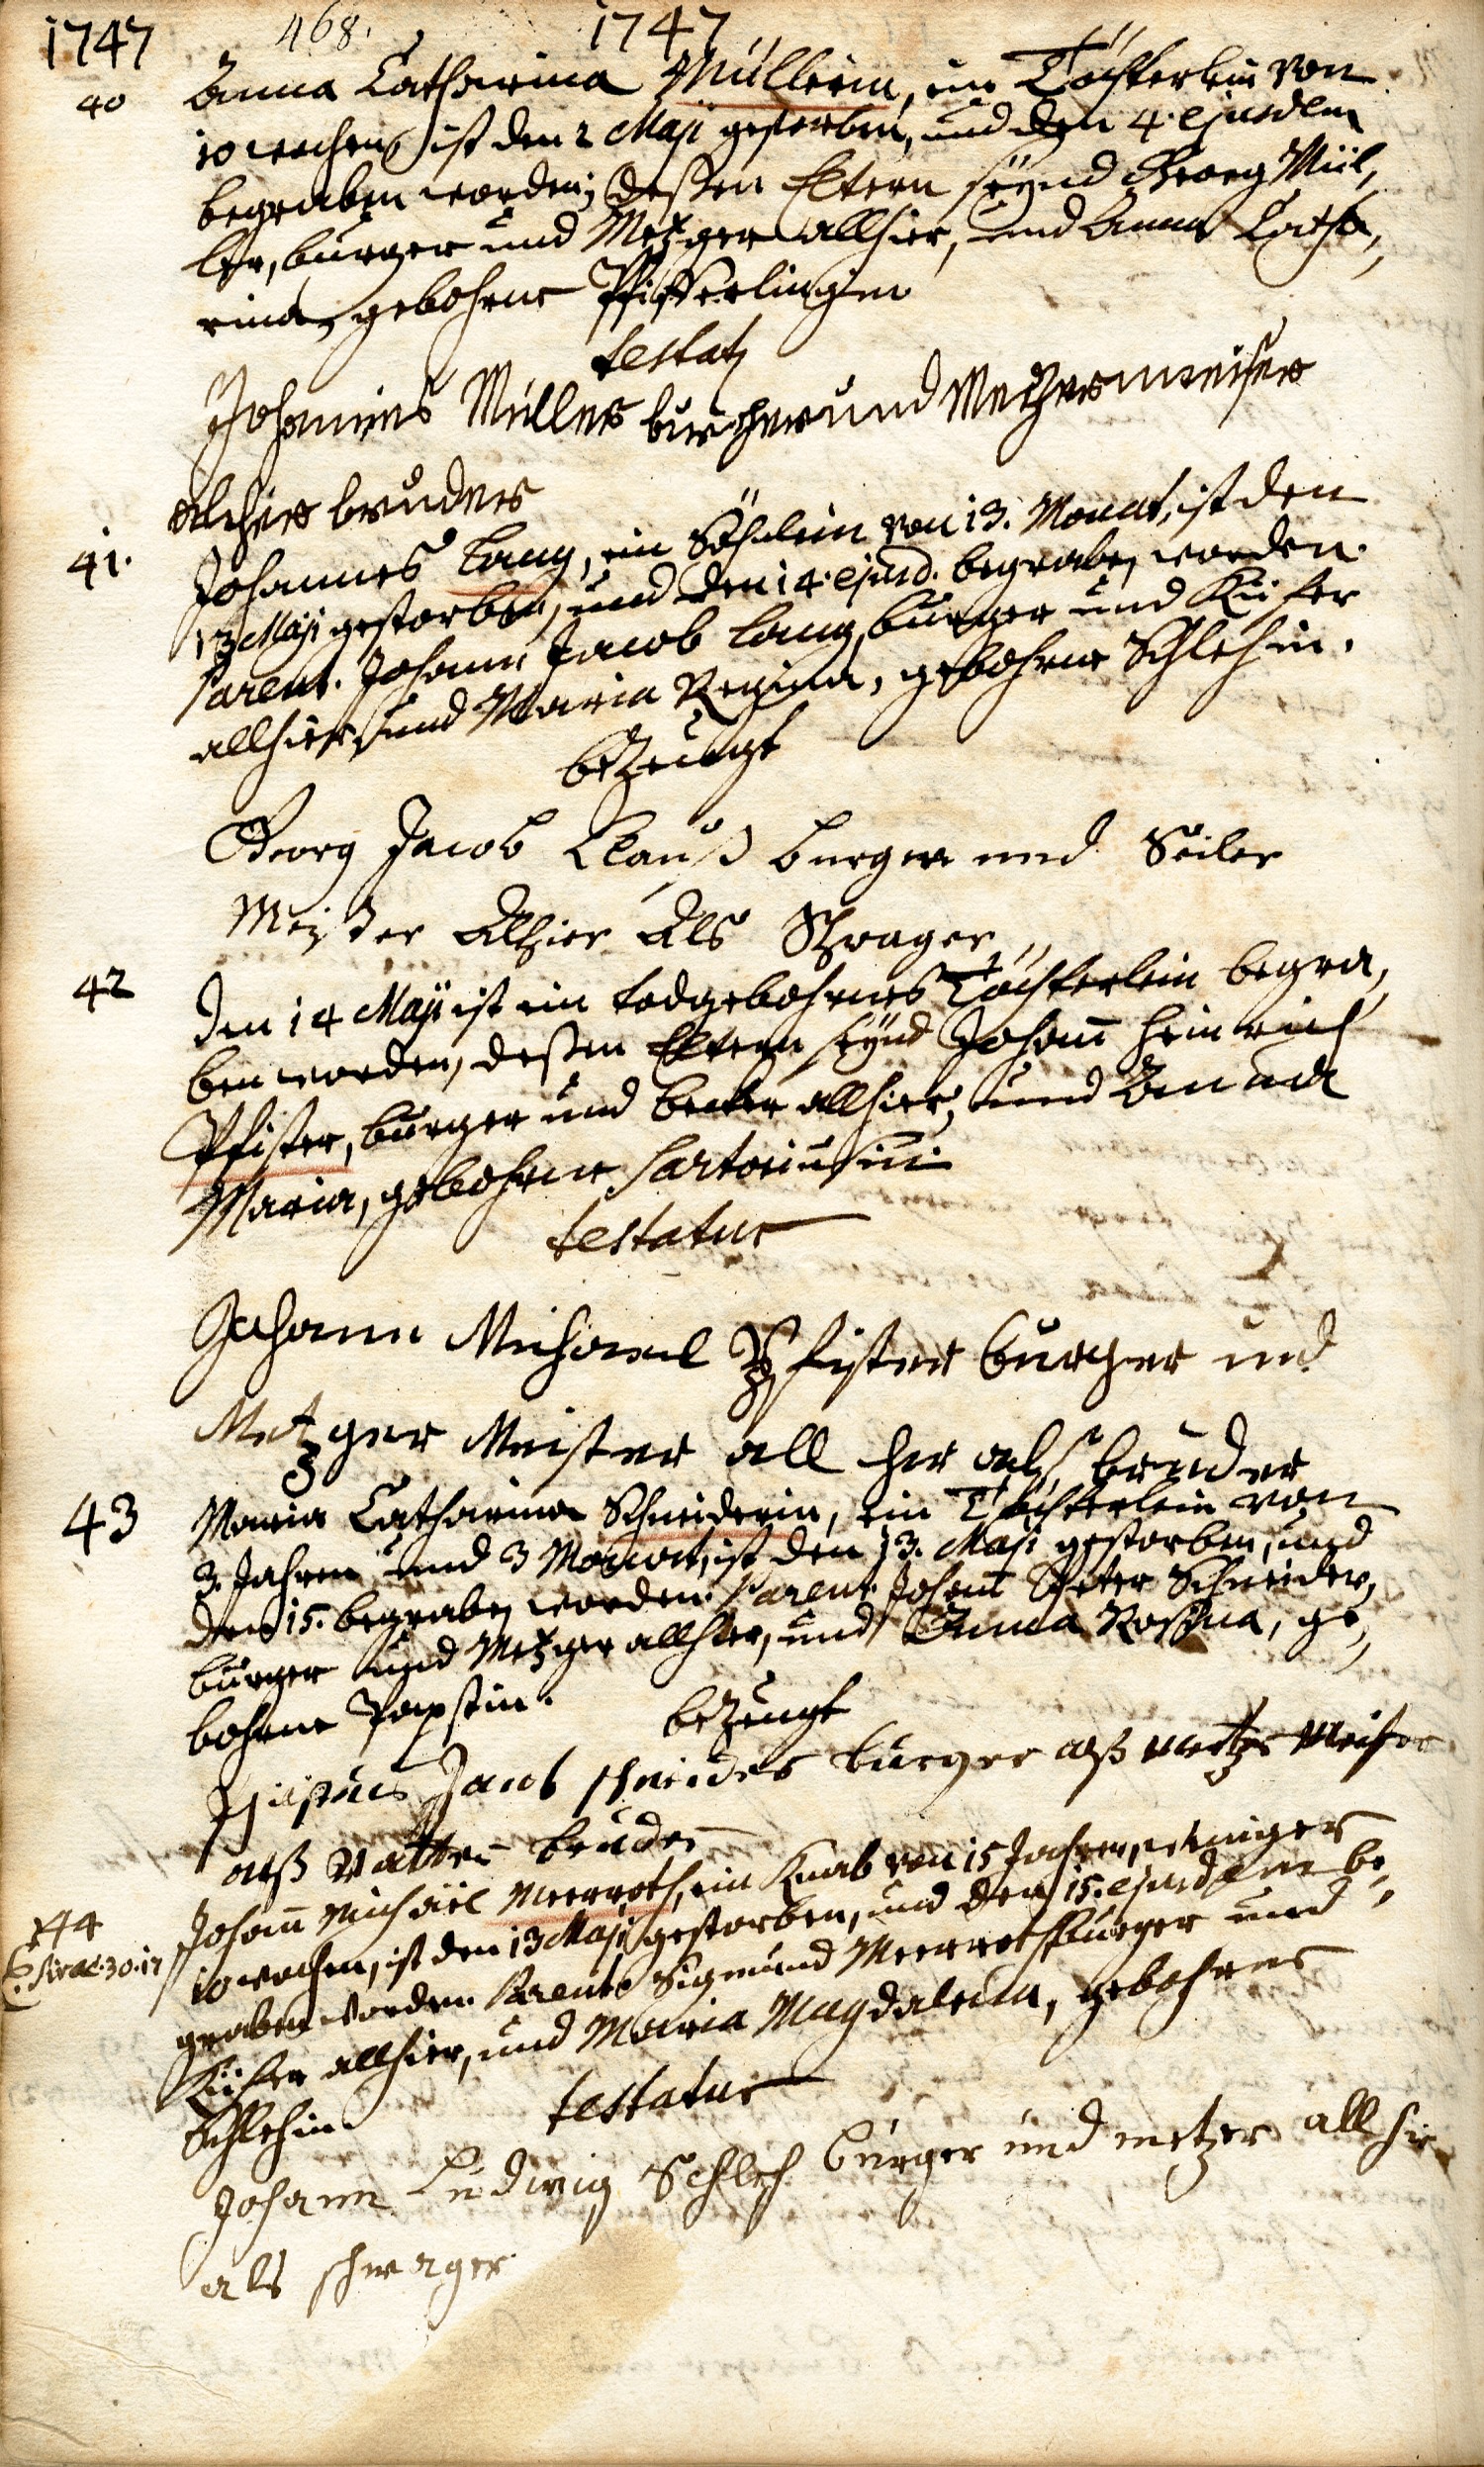 1747 468. 1747
40 Anna Catharina Müllerin, ein Töchterlein von
10 wochen ist den 2 Maji gestorben, und den 4. ejusdem
begraben worden; deßen Eltern seÿnd Georg Mül,
ler, burger und Metzger allhier, und Anna Catha,
rina, gebohrne Pfifferlingin
testatz
Johannes Müller burger und Metzermeister
alhier bruder
41. Johannes Lang, ein Söhnlein von 13. Monat, ist den
13 Maji gestorben, und den 14. ejusd. begraben worden.
Parent. Johann Jacob Lang, burger und Küfer
allhier, und Maria Regina, gebohrne Schlehin.
bezeugt
Georg Jacob Clauß burger und Seiler
Meister Alhier Als Schwager
42 den 14 Maji ist ein todgebohrnes Töchterlein begra,
ben worden, deßen Eltern seÿnd Johann Heinrich
Pfister, burger und becker allhier, und Anna
Maria, gebohrne Sartoriusin.
testatur
Johann Michael Pfister burger und
Metzger Meister all hier als bruder
43 Maria Catharina Schneiderin, ein Töchterlein von
3. Jahren und 3 Monat, ist den 13. Maji gestorben, und
den 15. begraben worden. Parent. Johann Peter Schneider,
burger und Metzger allhier, und Anna Rosina, ge,
bohrne Papstin. bezeugt
Jacob schneider burger alß metzger Meister
alß Vatter bruder
44 Johann Michäel Meerroth, ein Knab von 15 Jahren, weniger
Sirac. 30. 17 10 wochen, ist den 13 Maji gestorben, und den 15. ejusdem be,
graben worden. Parent. Sigmund Meerroth burger und
Küfer allhier, und Maria Magdalena, gebohrne
Schlehin testatur
Johann Ludwig Schleh burger und metzer all hir
als schwager